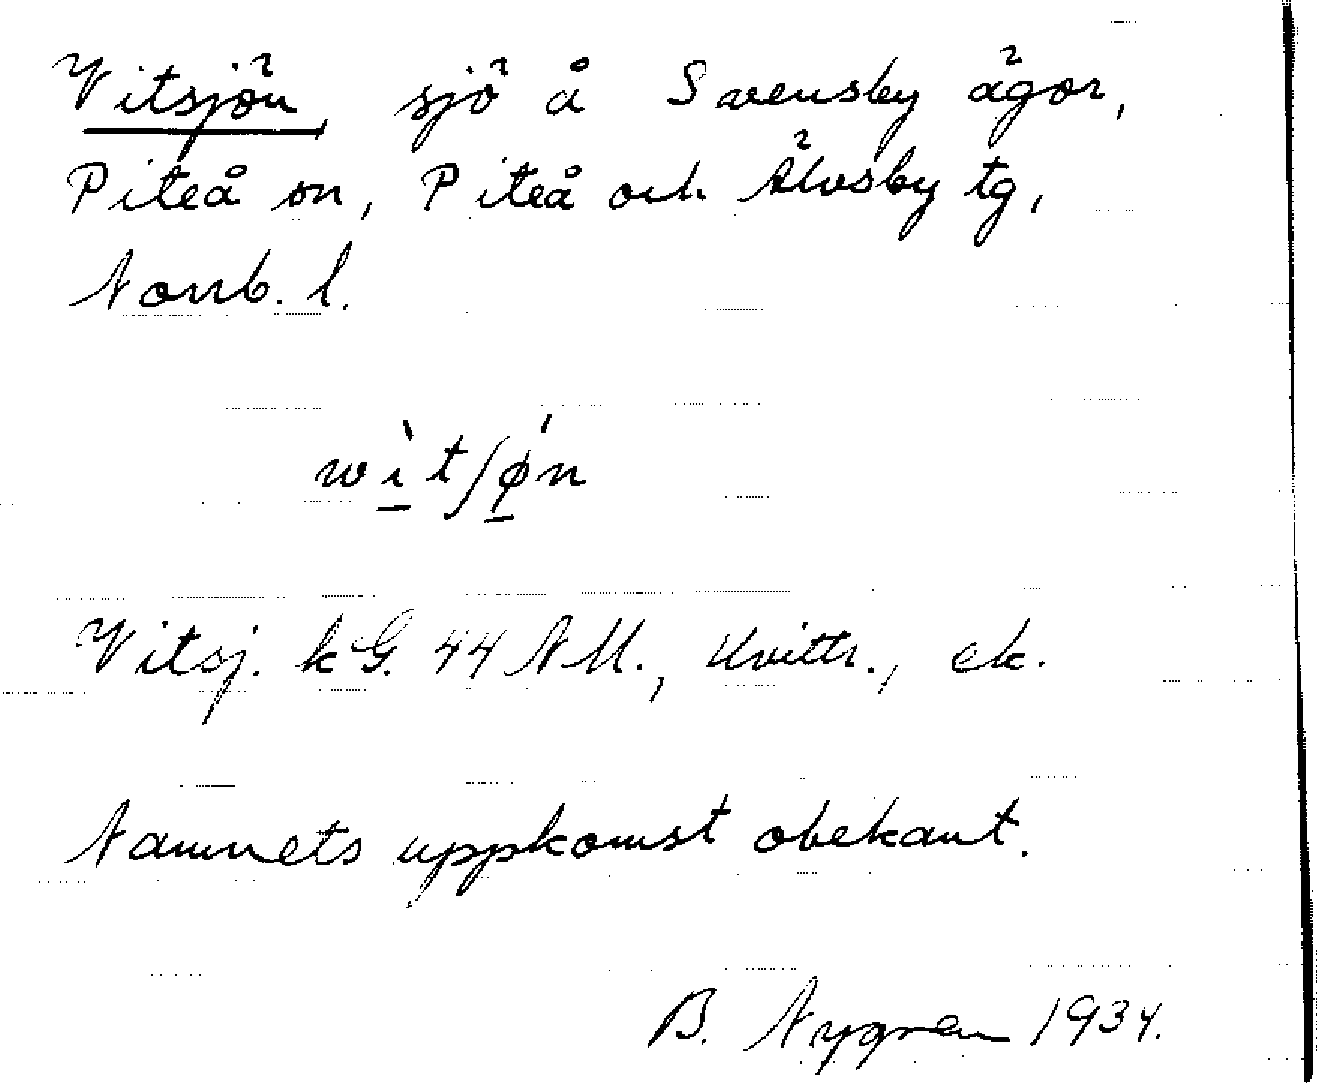 Vitsjön, sjö å Svensby ägor,
Piteå sn, Piteå och Älvsby tg,
Norrb. l.
wìtʃø̀n
Vitsj. kG. 44 NM., Kvittr., ek.
Namnets uppkomst obekant.
B. Nygren 1934.